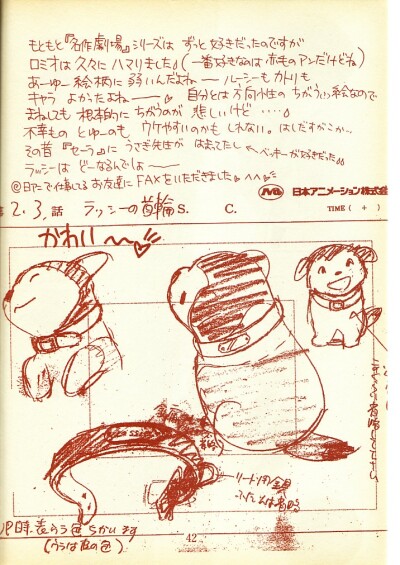 もともと『名作劇場』シリーズは ずっと好きだったのですが
ロミオは久々に ハマりました♪(一番好きなのは 赤毛のアンだけどね)
あーゆー絵柄に 弱いんだよねー ルーシーも カトリも
キャラ よかったよねー 自分とは 方向性の ちがうっ絵なので
まねしても 根本的に ちがうのが 悲しいけど ・・・・
不幸もの とゆーのも ウケやすいのかも しれない。
その昔『セーラ』に うさぎ先生が はまってたし ←ベッキーが好きだった♪
ラッシーは どーなるんでしょ〜
@日アニで仕事してる お友達に FAXをいただきました
日本アニメーション株式会
2.3.話 ラッシーの首輪 S. C. TIME ( + )
かわい〜
リード用金具
UP時、表うら色ちがいます
42